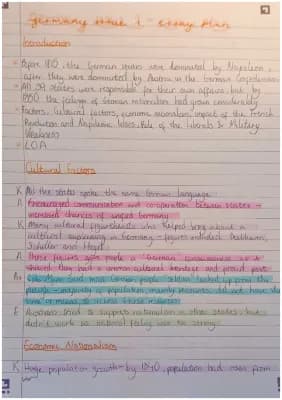 Germany Issue 1 - essay plan
Introduction
Before 1810, the German states were dominated by Napoleon,
after they were dominated by Austria in the German Confederation
All 39 states were responsible for their own affairs, but by
1850 the feelings of German nationalism had grown considerably
Factors, cultural factors, economic nationalism, impact of the French
Revolution and Napoleonic Wars, Role of the Liberals & Military
Weakness
L.O.A
Cultural Factors
K All the states spoke the same German language
A Encouraged communication and co-operation between states -
increased chances of unified Germany
K Many cultural figureheads who helped bring about a
cultural in Germany - figures included Beethoven,
Schiller and
A These figures gave people a 'German consciousness' as it
showed they had a common cultural heritage and proud past
A+ said most German people seldom looked up from the
plough - majority of population, mainly peasants, did not have the
time or means to access these
E Austrians tried to suppress nationalism in other states, but
didn't work as national feeling was too strong
Economic Nationalism
K Huge population growth - by 1840, population had risen from